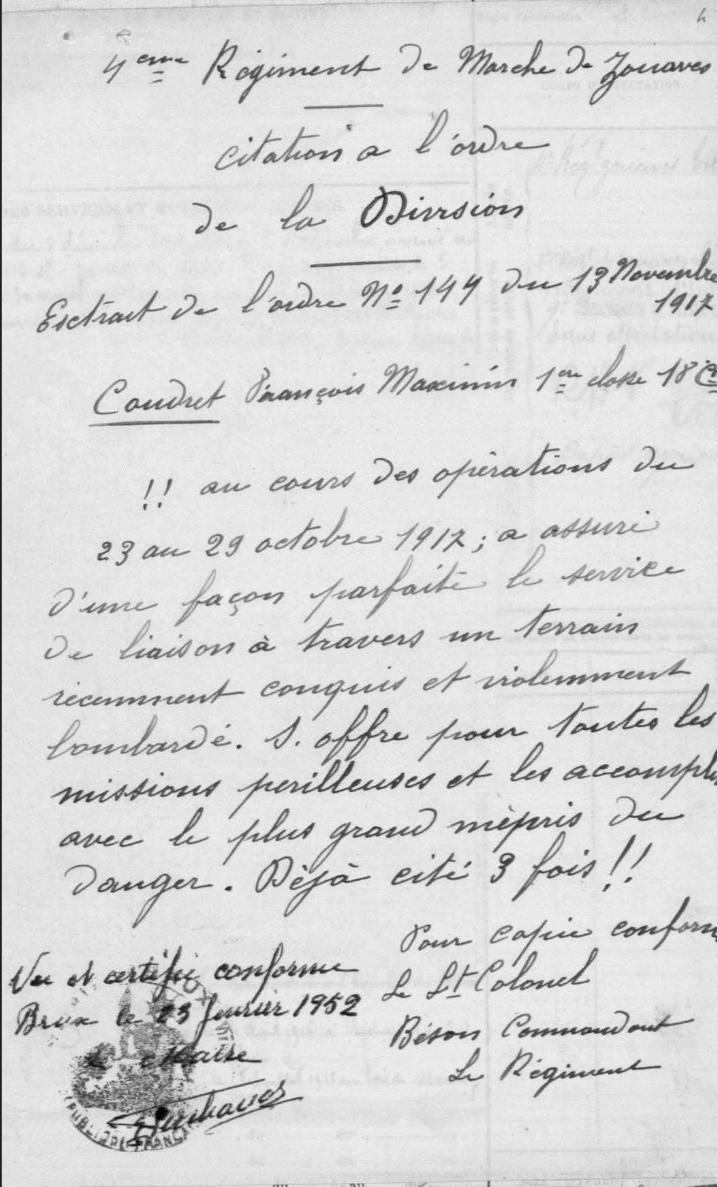 4
4eme Régiment de Marche de Zouaves
citation a l'ordre
de la Division
Esctrait de l'ordre No 144 du 13 Novembre
1917
Coudret François Maximin 1ère classe 18 Cie
!! au cours des opèrations du
23 au 29 octobre 1917; a assuré
d'une façon parfaite le service
de liaison à travers un terrain
récemment conquis et violemment
bombardé. S. offre pour toutes les
missions perilleuses et les accompli
avec le plus grand mèpris du
danger. Dèjà cité 3 fois !!
Pour copie conforme
Le Lt Colonel
Bèson Commandant
Le Régiment
Vu et certifié conforme
le 23 fevrier 1952
Le Maire